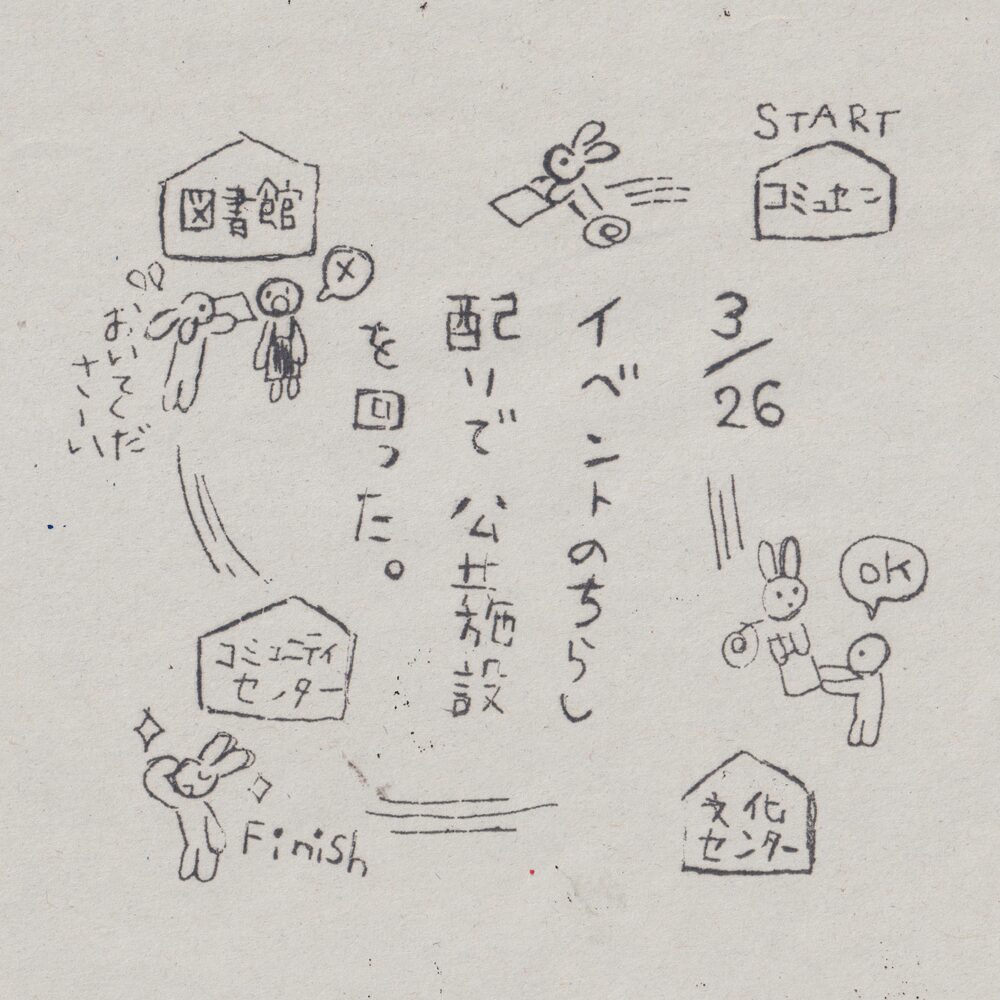 START
コミュセン
3/26
イベントのちらし
配りで公共施設
を回った。
OK
文化
センター
図書館
×
おいてくだ
さーい
コミュニティ
センター
Finish